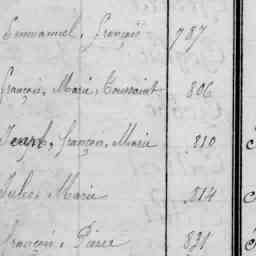 Emmanuel, François 787
François, Marie, Toussaint 806
Joseph, François, Marie 810
Jules, Marie 814
François, Pierre 821